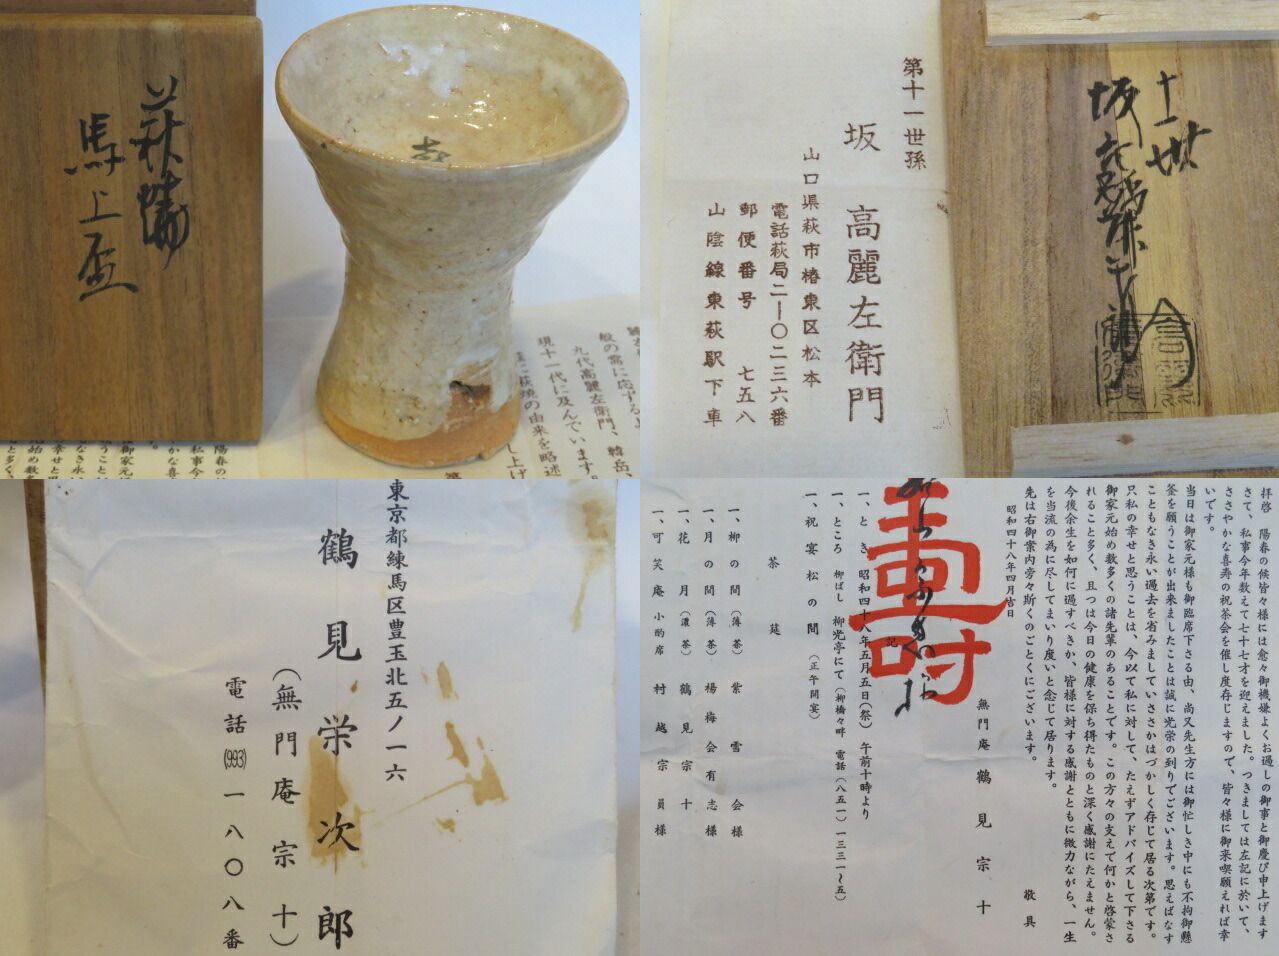 萩焼
馬上盃
吉
鶴
板の需に応ずる
九代高麗左衛門、韓岳、
現十一代に及んでいます。
萩焼の由来を略述
し上げ
第十一世孫
坂 高麗左衛門
山口県萩市椿東区松本
電話萩局二―〇二三六番
郵便番号 七五八
山陰線東萩駅下車
十一世
坂高麗左衛門
東京都練馬区豊玉北五ノ一六
鶴見栄次郎
(無門庵宗十)
電話(993)一八〇八番
拝啓 陽春の候皆々様には愈々御機嫌よくお過しの御事と御慶び申上げます
さて、私事今年数えて七十七才を迎えました。つきましては左記に於いて、
ささやかな喜寿の祝茶会を催し度存じますので、皆々様に御来喫願えれば幸
いです。
当日は御家元様も御臨席下さる由、尚又先生方には御忙しき中にも不拘御懸
釜を願うことが出来ましたことは誠に光栄の到りでございます。思えばなす
こともなき永い過去を省みましていささかはづかしく存じて居る次第です。
只私の幸せと思うことは、今以て私に対して、たえずアドバイズして下さる
御家元始め数多くの諸先輩のあることです。この方々の支えで何かと啓蒙さ
れること多く、且つは今日の健康を保ち得たものと深く感謝にたえません。
今後余生を如何に過すべきか、皆様に対する感謝とともに微力ながら、一生
を当流の為に尽してまいり度いと念じて居ります。
先は右御案内旁々斯くのごとくにございます。
敬具
昭和四十八年四月吉日
無門庵 鶴見宗十
寿
記
一、とき 昭和四十八年五月五日(祭) 午前十時より
一、ところ 柳ばし 柳光亭にて(柳橋々畔 電話(八五一)一三三一~五)
一、祝宴松の間(正午開宴)
茶莚
一、柳の間(薄茶) 紫雪会様
一、月の間(薄茶) 楊梅会有志様
一、花月(濃茶) 鶴見宗十
一、可笑庵小酌席 村越宗員様